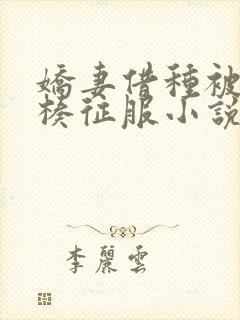 嬌妻借種被
楱征服小說
李麗雲